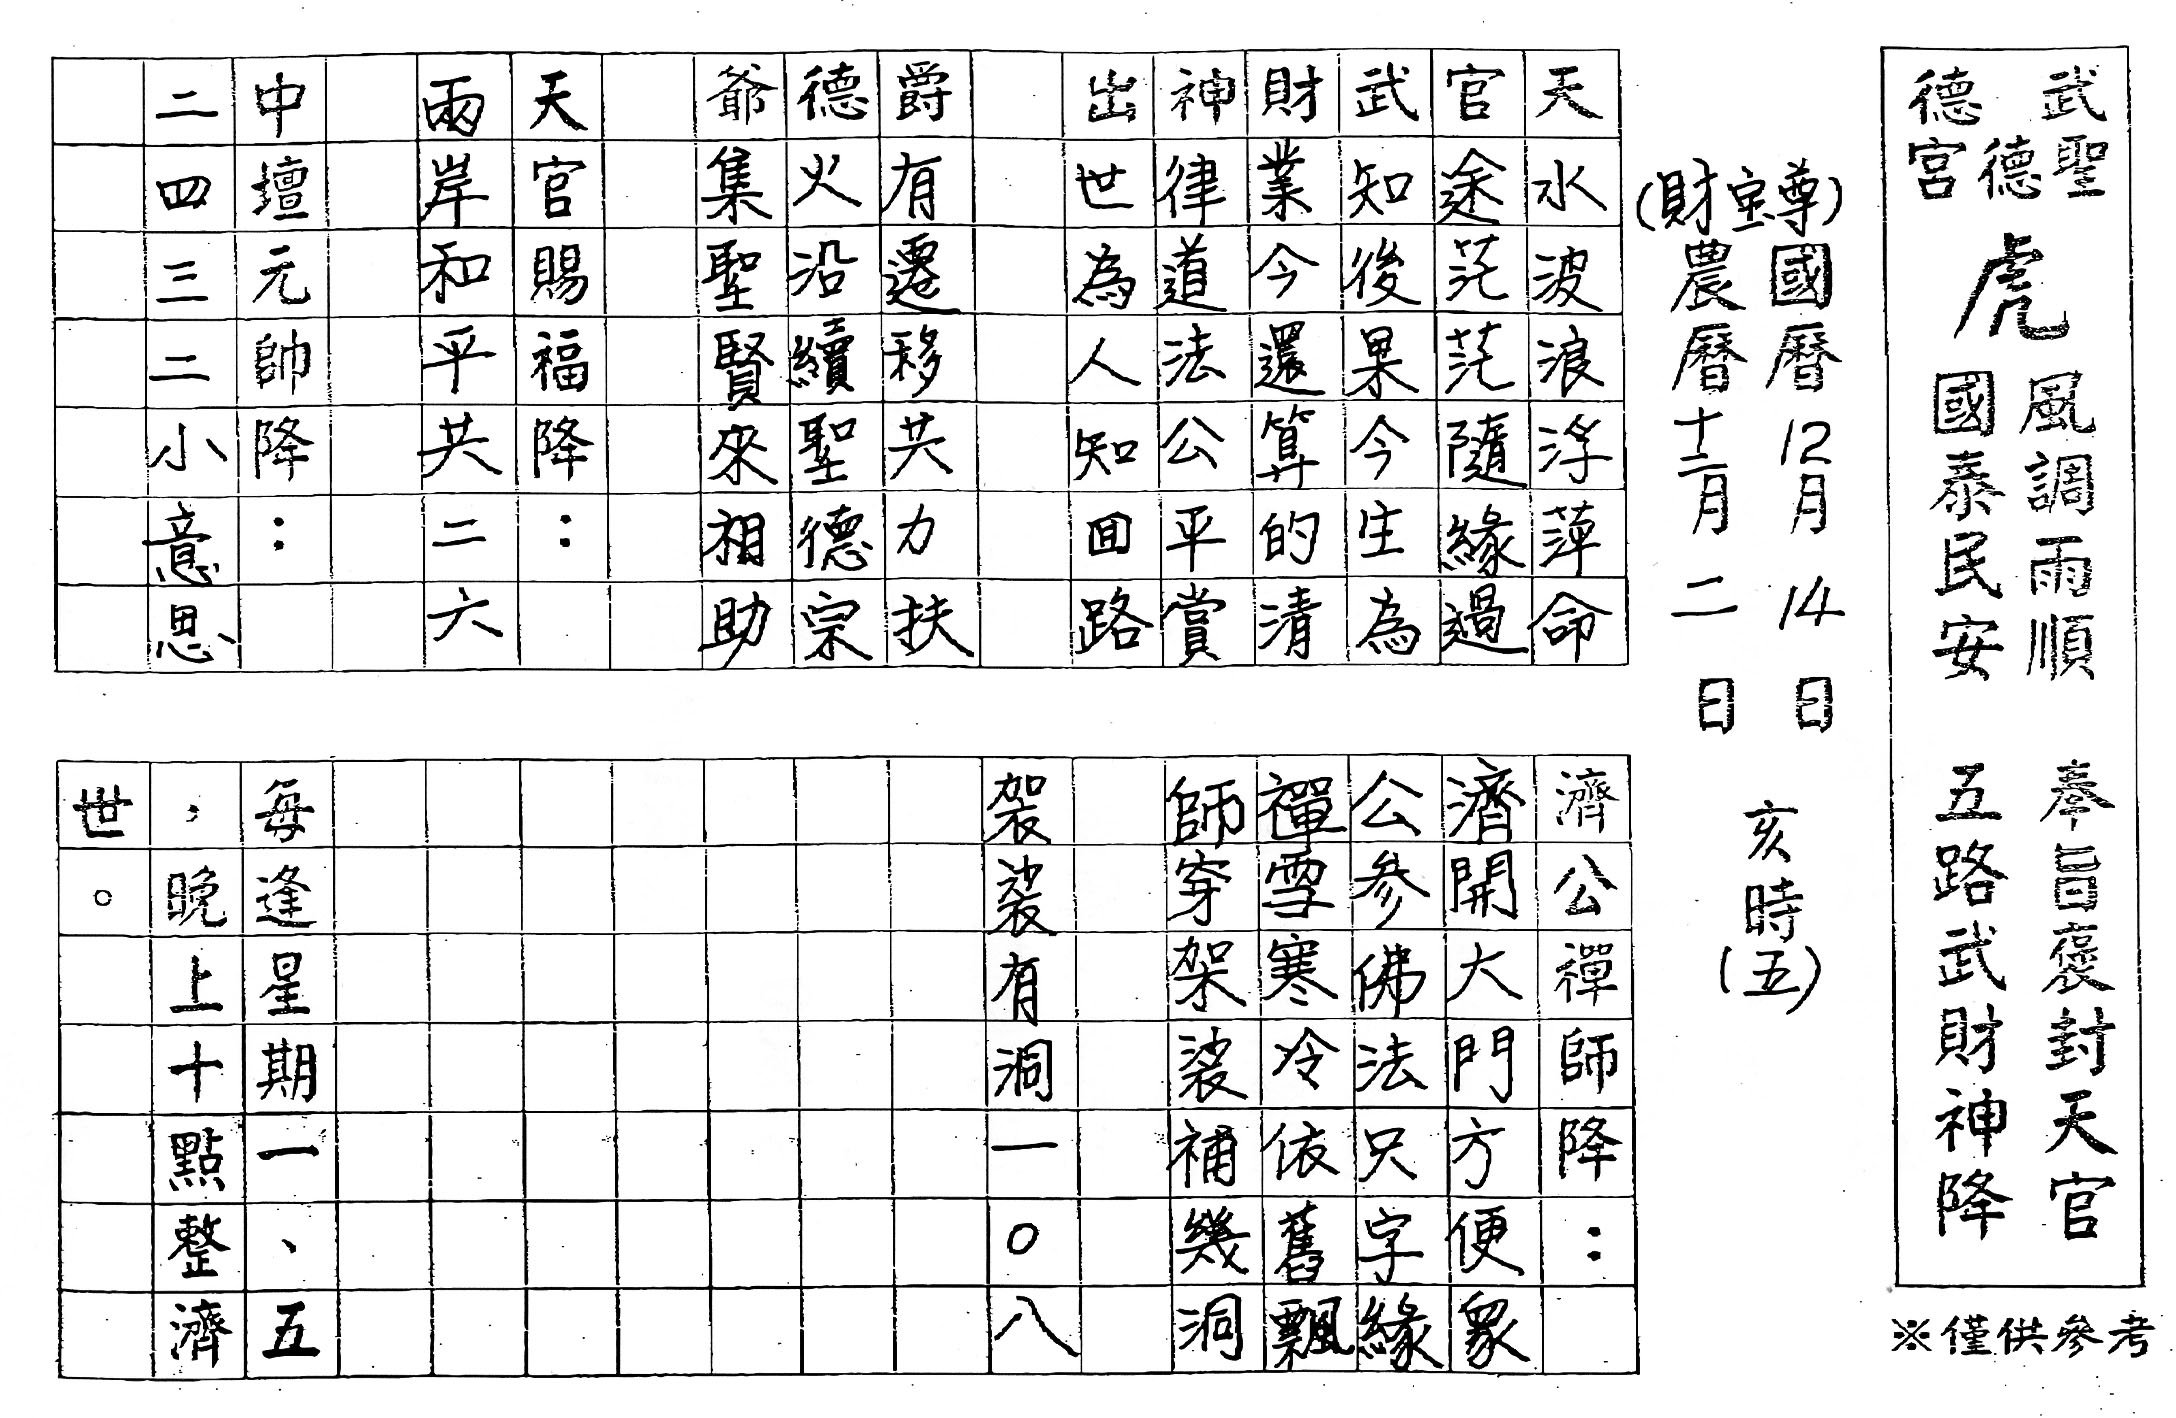 武聖德德宮
虎
風調雨順
國泰民安
奉旨褒封天官
五路武財神降
※僅供參考
(財宝尊)
國曆12月14日
農曆十二月二日
亥時(五)
天水波浪浮萍命
官途茫茫隨緣過
武知後果今生為
財業今還算的清
神律道法公平賞
出世為人知回路
爵有遷移共力扶
德火沿續聖德宗
爺集聖賢來相助
天官賜福降：
兩岸和平共二六
中壇元帥降：
二四三二小意思
濟公禪師降：
濟開大門方便眾
公參佛法只字緣
禪雪寒冷依舊飄
師穿袈裟補幾洞
袈裟有洞一0八
每逢星期一、五
，晚上十點整濟
世。